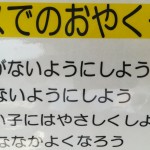 でのおやく
がないようにしよう
ないようにしよう
い子にはやさしくしよ
なかよくなろう